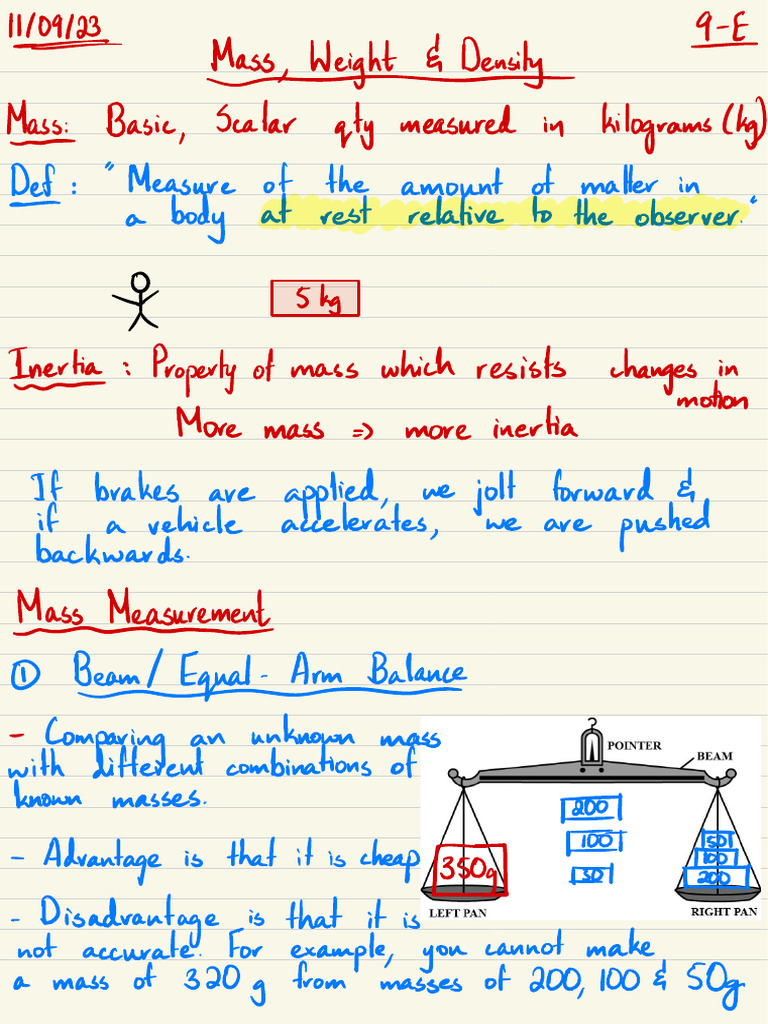 11/09/23
9-E
Mass, Weight & Density
Mass: Basic, Scalar qty measured in kilograms (kg)
Def: "Measure of the amount of matter in
a body at rest relative to the observer."
5 kg
Inertia: Property of mass which resists changes in
motion
More mass => more inertia
If brakes are applied, we jolt forward &
if a vehicle accelerates, we are pushed
backwards.
Mass Measurement
① Beam/Equal-Arm Balance
- Comparing an unknown mass
with different combinations of
known masses.
- Advantage is that it is cheap
- Disadvantage is that it is
not accurate. For example, you cannot make
a mass of 320 g from masses of 200, 100 & 50g
POINTER
BEAM
200
100
50
350g
50
100
200
LEFT PAN
RIGHT PAN